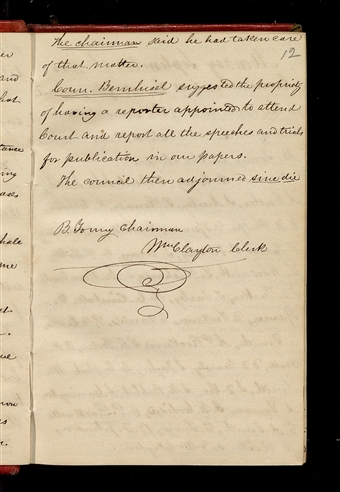 The chairman said he had taken care
12
of that matter.
Coun. Bernhisel suggested the propriety
of having a reporter appointed to attend
Court and report all the speeches and trials
for publication in our papers.
The council then adjourned sine die
B. Young Chairman
Wm Clayton Clerk
and